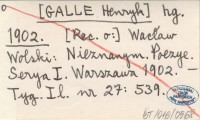 [GALLE Henryk] hg.
1902. [Rec. o:] Wacław
Wolski: Nieznanym. Poezye.
Serya I. Warszawa 1902. —
Tyg. Il. nr 27: 539.